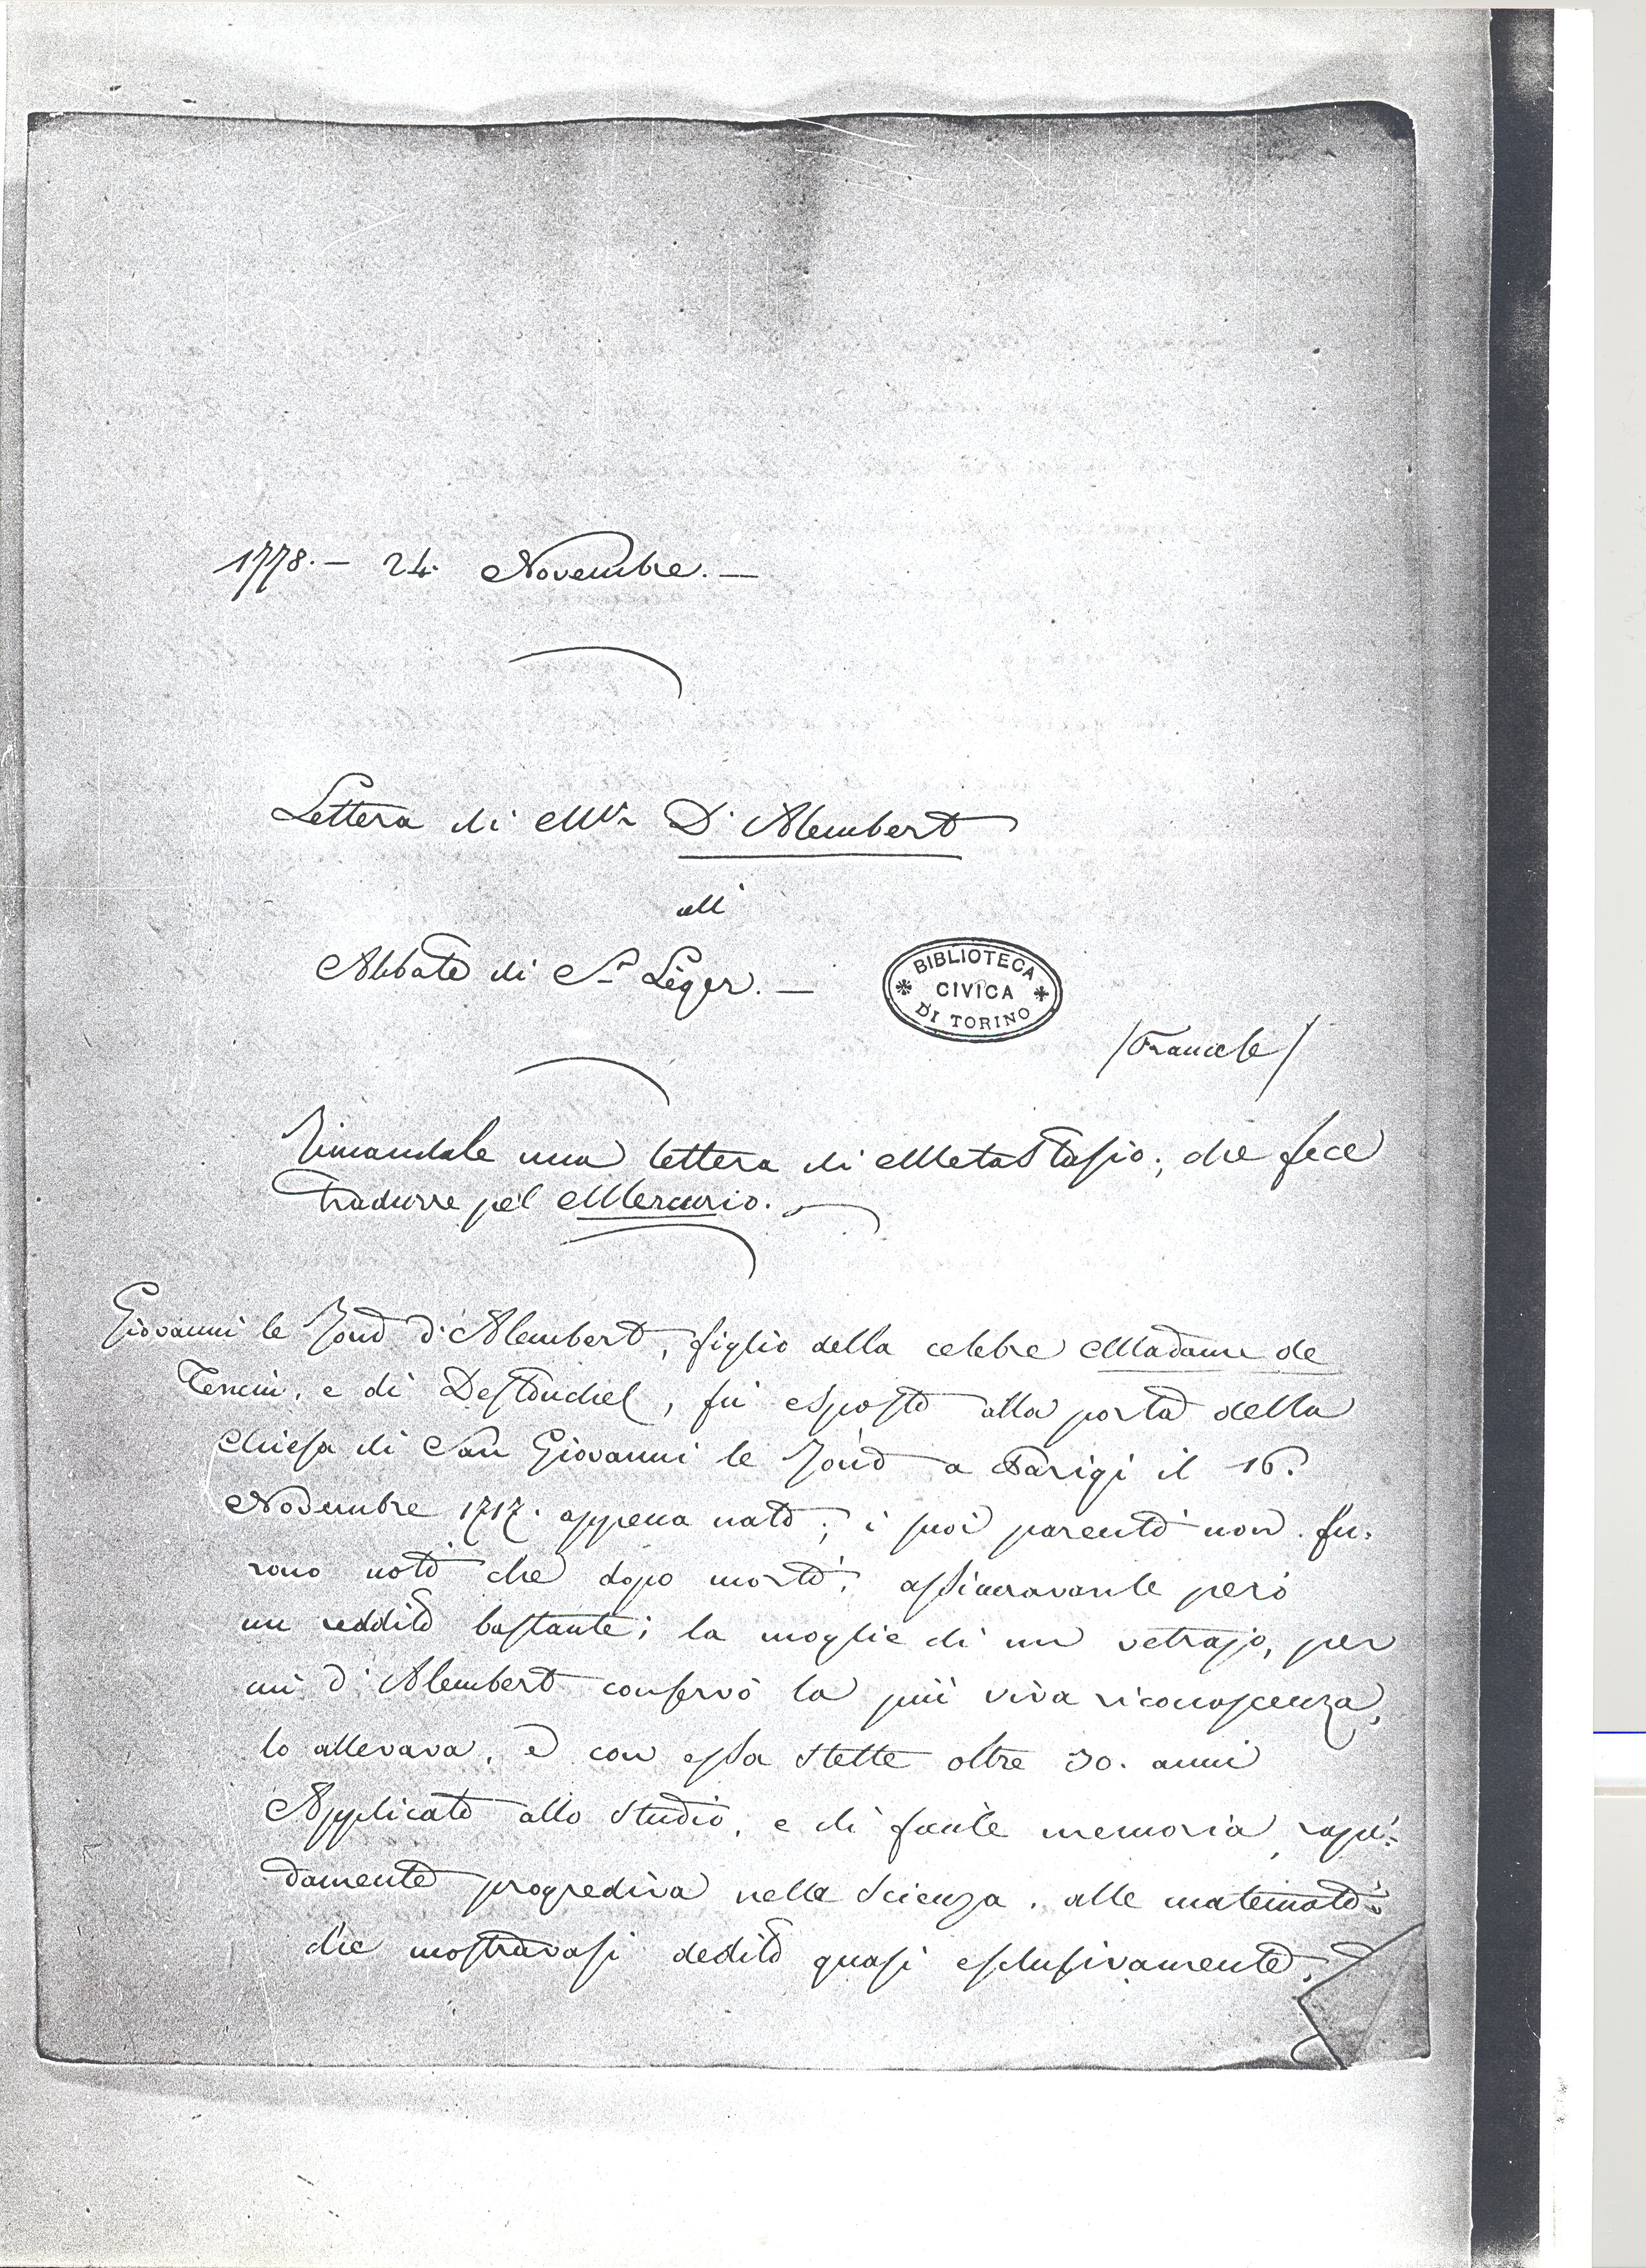 1778. — 24. Novembre. —
Lettera di Mr. D'Alembert
all'
Abbate di St. Léger. —
BIBLIOTECA
CIVICA
DI TORINO
/Francese/
Rimandale una lettera di Metastasio; che fece
tradurre pel Mercurio. —
Giovanni le Rond d'Alembert, figlio della celebre Madame de
Tencin, e di Destouches, fù esposto alla porta della
Chiesa di San Giovanni le Rond a Parigi il 16.
Novembre 1717. appena nato; i suoi parenti non fu-
rono noti che dopo morti; assicuravanle però
un reddito bastante; la moglie di un vetrajo, per
cui d'Alembert conservò la più viva riconoscenza,
lo allevava, e con essa stette oltre 30. anni
Applicato allo studio, e di facile memoria, rapi-
damente progrediva nella scienza, alle matemati-
che mostravasi dedito quasi esclusivamente,